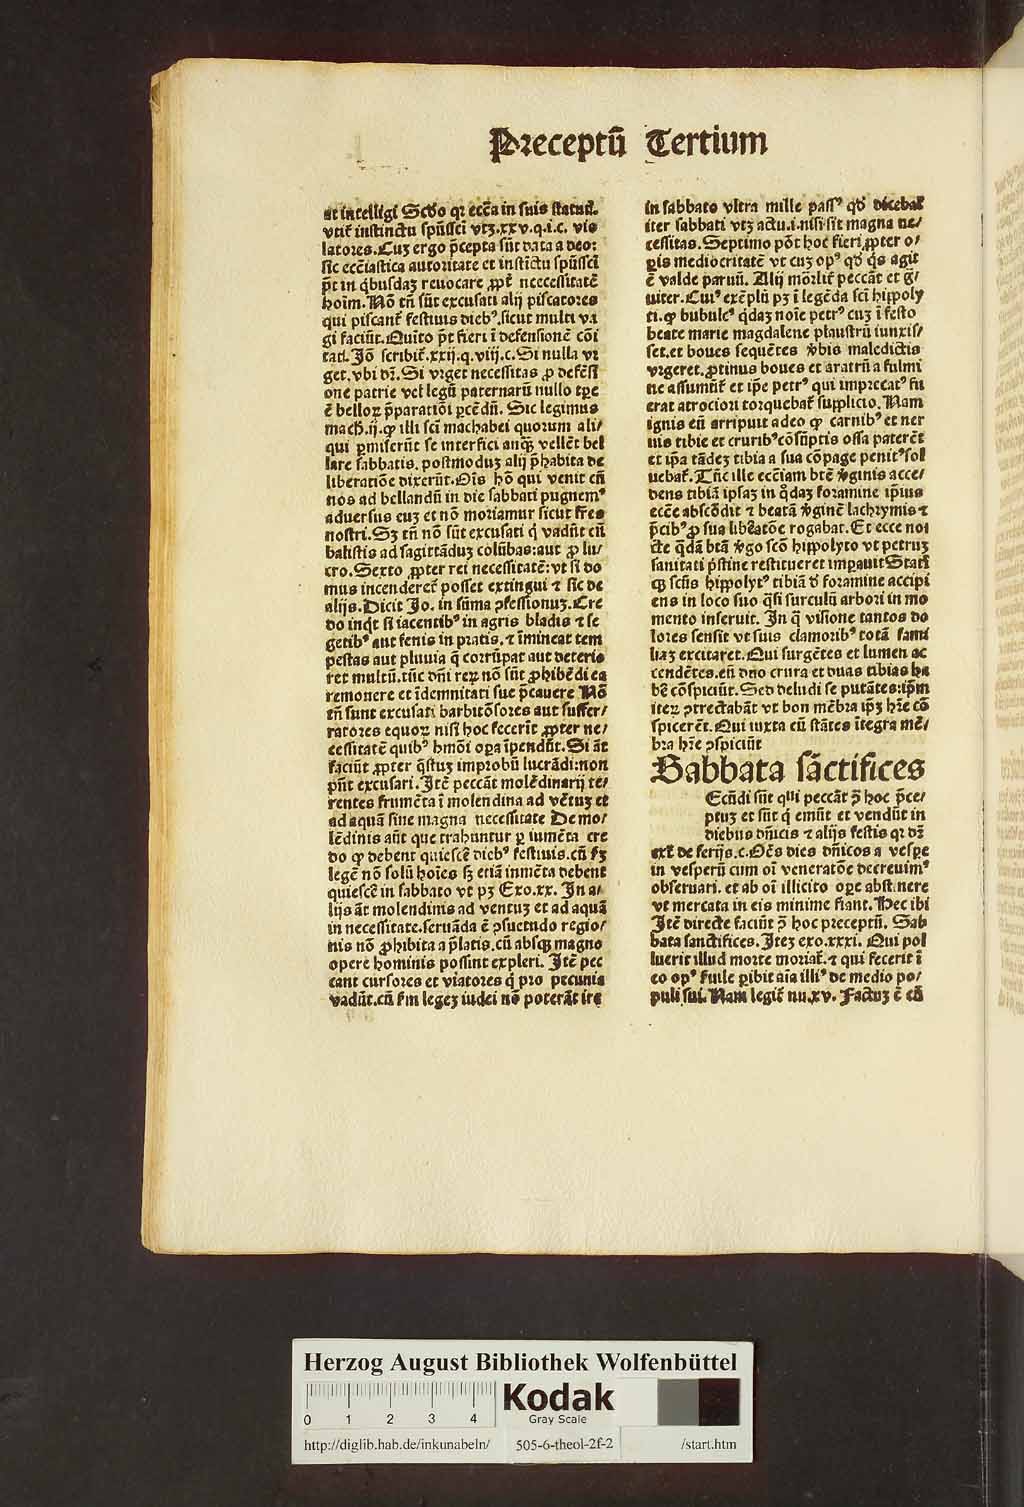 Preceptū Tertium
at intelligi Scďo qꝛ eccͣa in suis statut̄.
vtit̄ instinctu spūssci vtꝫ.xxv.q.i.c. vio
latores. Cuꝫ ergo p̄cepta sūt data a deo:
sic ecc̄iastica autoritate et instīctu spūssci
p̄t in qͥbusdaꝫ reuocare ꝓpt̄ neccessitatē
hoīm. Nō tn̄ sūt excusati alij piscatores
qui piscant̄ festiuis diebꝰ. sicut multi va
gi faciūt. Quīto p̄t fieri ī defensionē cōi
tati. Jō scribit̄.xxij.q.viij.c. Si nulla vr
get. vbi dī. Si vrget necessitas ꝓ defēsi
one patrie vel legū paternarū nullo tꝑe
ē belloꝝ p̄paratiōi ꝑcēdū. Sic legimus
mach.ij. ꝙ illi scī machabei quorum ali/
qui ꝑmiserūt se interfici anqͣꝫ vellēt bel
lare sabbatis. postmoduꝫ alij p̄habita de
liberatiōe dixerūt. Oīs hō qui venit cū
nos ad bellandū in die sabbati pugnemꝰ
aduersus euꝫ et nō moriamur sicut fr̄es
nostri. Sꝫ tn̄ nō sūt excusati qͥ vadūt cū
balistis ad sagittāduꝫ colūbas: aut ꝓ lu/
cro. Sexto ꝓpter rei necessitatē: vt si do
mus incenderet̄ posset extingui ⁊ sic de
alijs. Dicit Jo. in sūma ꝯfessionuꝫ. Cre
do inqͥt si iacentibꝰ in agris bladis ⁊ se
getibꝰ aut fenis in pratis. ⁊ īmineat tem
pestas aut pluuia q̄ corrūpat aut deterio
ret multū. tūc dn̄i reꝝ nō sūt ꝓhibēdi ea
remouere et īdemnitati sue p̄cauere Nō
tn̄ sunt excusati barbitōsores aut suffer/
ratores equoꝝ nisi hoc fecerīt ꝓpter ne/
cessitatē quibꝰ hmōi oꝑa īpendūt. Si āt
faciūt ꝓpter q̄stuꝫ improbū lucrādi: non
pn̄t excusari. Jtē peccāt molēdinarij te/
rentes frumēta ī molendina ad vētuꝫ et
ad aquā sine magna necessitate De mo/
lēdinis aūt que trahuntur ꝑ iumēta cre
do ꝙ debent quiescē diebꝰ festiuis. cū sꝫ
legē nō solū hoīes sꝫ etiā iumēta debent
quiescē in sabbato vt pꝫ Exo.xx. Jn a/
lijs āt molendinis ad ventuꝫ et ad aquā
in necessitate. seruāda ē ꝯsuetudo regio/
nis nō ꝓhibita a p̄latis. cū absqꝫ magno
opere hominis possint expleri. Jtē pec
cant cursores et viatores q̄ pro pecunia
vadūt. cū ẜm legeꝫ iudei nō poterāt ire
in sabbato vltra mille passꝰ qď dicebat̄
iter sabbati vtꝫ actu.i. nisi sit magna ne/
cessitas. Septimo pōt hoc fieri ꝓpter o/
ꝑis mediocritatē vt cuꝫ opꝰ qď qͥs agit
ē valde paruū. Alij mōrlit̄ peccāt et gͣ/
uiter. Cuiꝰ exēplū pꝫ ī legēda scī hippoly
ti. ꝙ bubulcꝰ qͥdaꝫ noīe petrꝰ cuꝫ ī festo
beate marie magdalene plaustrū iunxis/
set. et boues sequētes v̄bis maledictis
vrgeret. ꝓtinus boues et aratrū a fulmi
ne assumūt̄ et ip̄e petrꝰ qui imprecatꝰ fu
erat atrociori torquebat̄ supplicio. Nam
ignis eū arripuit adeo ꝙ carnibꝰ et ner
uis tibie et cruribꝰ cōsūptis ossa paterēt
et ip̄a tādeꝫ tibia a sua cōpage penitꝰ sol
uebat̄. Tūc ille ecc̄iam btē v̄ginis acce/
dens tibiā ipsaꝫ in qͥdaꝫ foramine ip̄ius
ecc̄e abscōdit ⁊ beatā v̄ginē lachrymis ⁊
p̄cibꝰ ꝓ sua liberatōe rogabat. Et ecce noc
te qͣdā btā v̄go scō hippolyto vt petruꝫ
sanitati p̄stine restitueret imperauit Stati
qꝫ sctūs hippolytꝰ tibiā ď foramine accipi
ens in loco suo qͣsi surculū arbori in mo
mento inseruit. Jn qͣ visione tantos do
lores sensit vt suis clamoribꝰ totā fami
liaꝫ excitaret. Qui surgētes et lumen ac
cendētes. eū duo crura et duas tibias ha
bē cōspiciūt. Sed deludi se putātes: ip̄m
iteꝝ ꝯtrectabāt vt bon mēbra ip̄ꝫ hr̄e cō
spicerēt. Qui iuxta eū stātes ītegra mē/
bra hr̄e ꝯspiciūt
Sabbata sāctifices
Ecūdi sūt qui peccāt ꝯ̄ hoc p̄ce/
ptuꝫ et sūt qͥ emūt et vendūt in
diebus dn̄icis ⁊ alijs festis qꝛ dī
ext̄ de ferijs.c. Oēs dies dn̄icos a vesꝑe
in vesperū cum oī veneratōe decreuimꝰ
obseruari. et ab oī illicito oꝑe abstinere
vt mercata in eis minime fiant. Hec ibi
Jtē directe faciūt ꝯ̄ hoc preceptū. Sab
bata sanctifices. Jteꝫ exo.xxxi. Qui pol
luerit illud morte moriat̄. ⁊ qui fecerit ī
eo opꝰ ẜuile ꝑibit aīa illiꝰ de medio po/
puli sui. Nam legit̄ nu.xv. Factuꝫ ē cū
Herzog August Bibliothek Wolfenbüttel
0 1 2 3 4
Kodak
Gray Scale
http://diglib.hab.de/inkunabeln/ 505-6-theol-2f-2 /start.htm